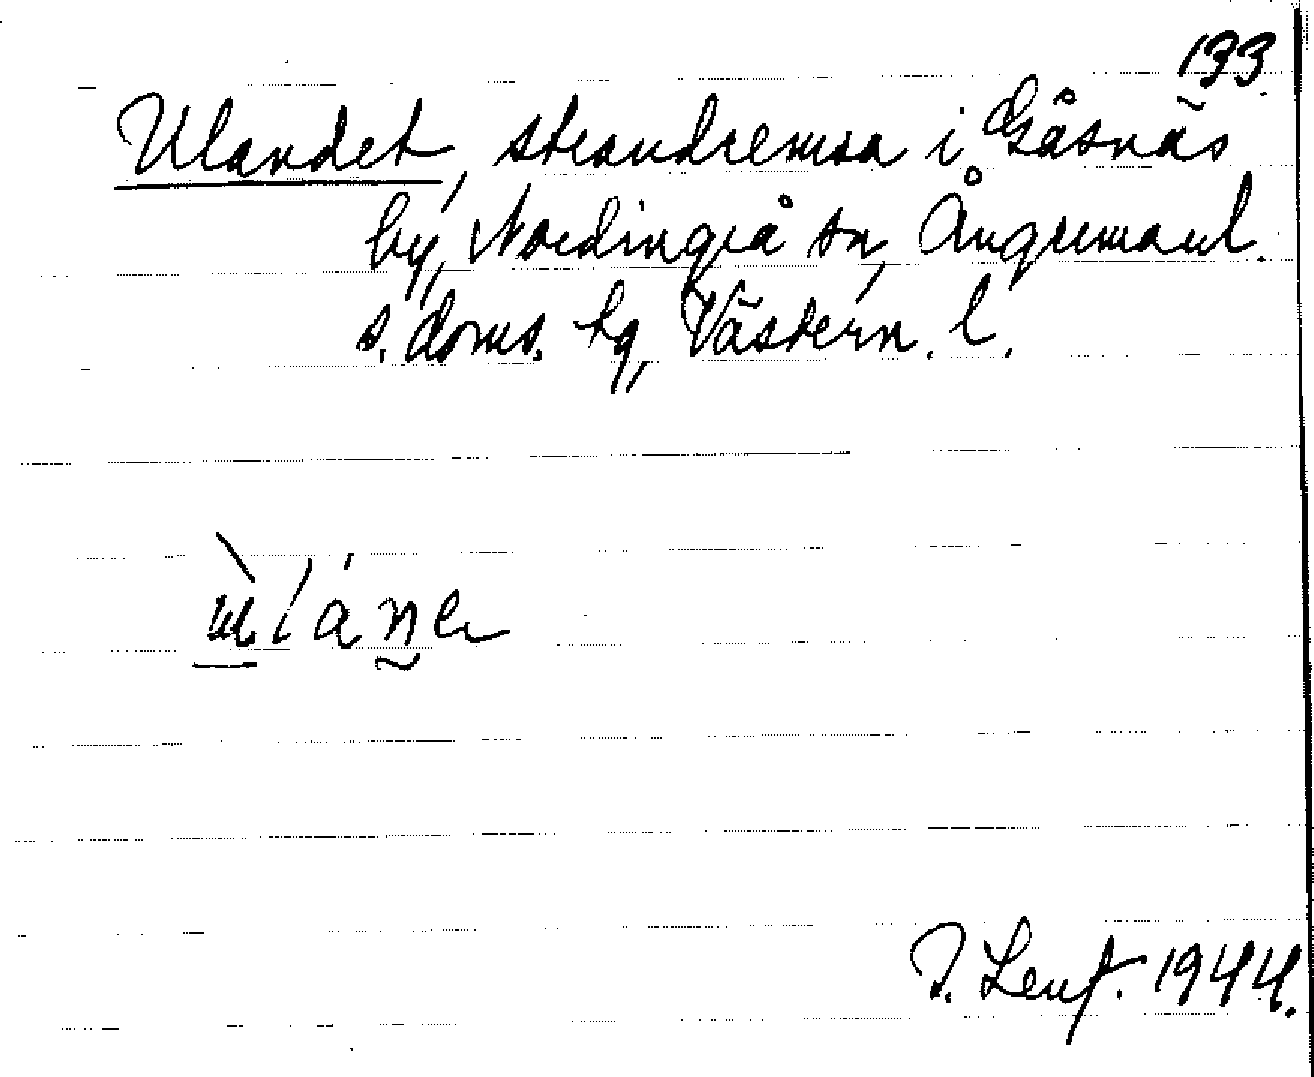 133
Ulandet, strandremsa i Gåsnäs
by, Nordingrå sn, Ångermanl.
s. doms. hg, Västern. l.
J. Lenf. 1944.